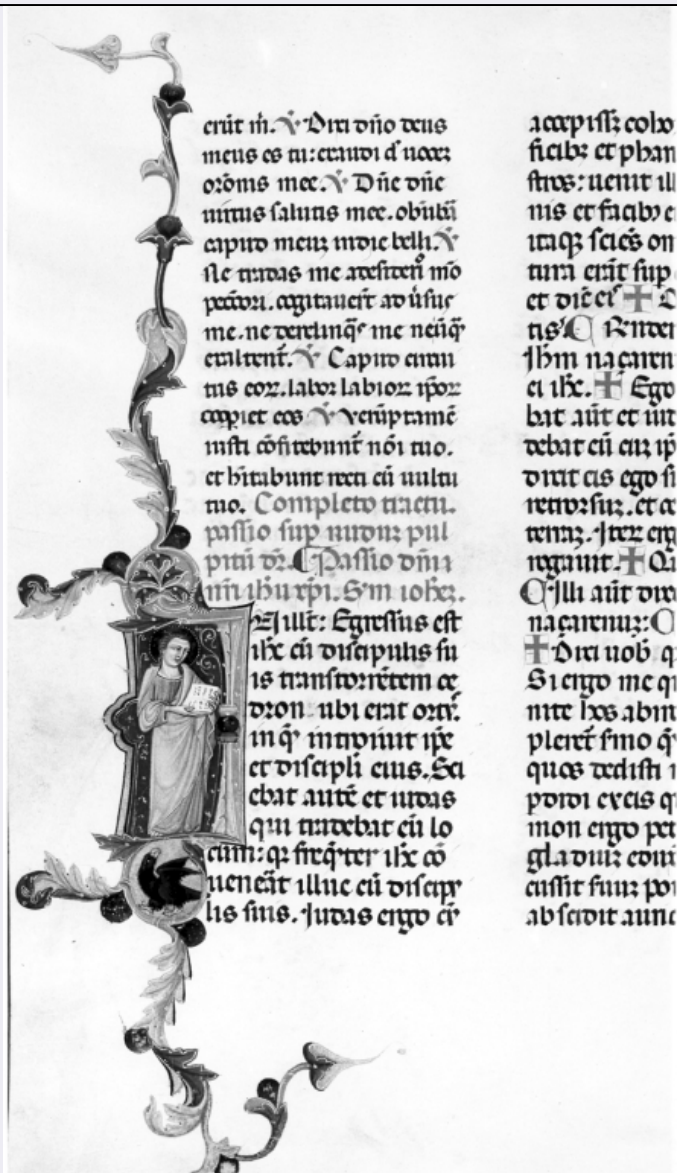 erūt m̄. ℣ Dixi dn̄o deus
meus es tu: exaudi d̄ uocez
orōnis mee. ℣ Dn̄e dn̄e
uirtus salutis mee. obūbā
caput meuz in die belli. ℣
Ne tradas me a desiderı̄ mō
peccōri. cogitauer̄t aduˀsus
me. ne derelinq̄s me neūq̄
exaltent̄. ℣ Caput circui
tus eoꝝ. labor labioꝝ ip̄oꝝ
coopiet eos ℣ Verūptamē
iusti cōfitebunt̄ nōi tuo.
et hītabunt recti cū uultu
tuo. Completo tractu.
passio sup nuduz pul
pitū dr̄. Passio dn̄i
nr̄i ih̄u xp̄i. S'm ioh̄ez.
N illō: Egressus est
ih̄c cū discipulis su
is trans torrētem ce
dron. ubi erat ort.
in q̄ introiuit ip̄e
et discipli eius. Sci
ebat autē et iudas
qui tradebat eū lo
cum: q̄ freq̄ter ih̄c cō
uenēat illuc cū discip
lis suis. Iudas ergo cū
accepissz coho
ficibꝫ et phar
stros: uenit ill
nis et facibꝫ e
itaqꝫ sciēs om
tura erāt sup
et dic̄ eis
tis Rn̄der
Jh̄m naçaren
ei ih̄c. Ego
bat aūt et iud
debat eū cuz ip̄
dixit eis ego s
retrorsuz. et c
terraz. Iteꝝ erg
rogauit. Qu
Illi aūt dixe
naçarenuz:
Dixi uob̄ q
Si ergo me q
nite hos abir
pleret̄ sermo q̄
quos dedisti
pdidi ex eis q
mon ergo pet
gladiuz edux
cussit seruuz pon
abscidit auric